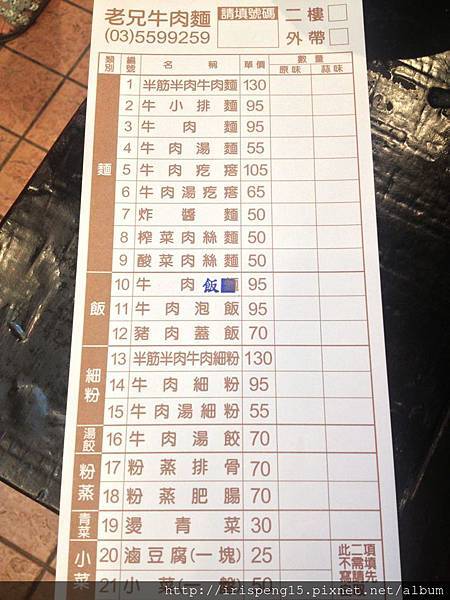 老兄牛肉麵 請填號碼 二樓
(03)5599259 外帶
類別 編號 名稱 單價 數量
原味 蒜味
麵
1 半筋半肉牛肉麵 130
2 牛小排麵 95
3 牛肉麵 95
4 牛肉湯麵 55
5 牛肉疙瘩 105
6 牛肉湯疙瘩 65
7 炸醬麵 50
8 榨菜肉絲麵 50
9 酸菜肉絲麵 50
飯
10 牛肉飯 95
11 牛肉泡飯 95
12 豬肉蓋飯 70
細粉
13 半筋半肉牛肉細粉 130
14 牛肉細粉 95
15 牛肉湯細粉 55
湯餃
16 牛肉湯餃 70
粉蒸
17 粉蒸排骨 70
18 粉蒸肥腸 70
青菜
19 燙青菜 30
小菜
20 滷豆腐(一塊) 25
21 小菜(一
此二項
不需填
寫請先
http://irispeng15.pixnet.net/album